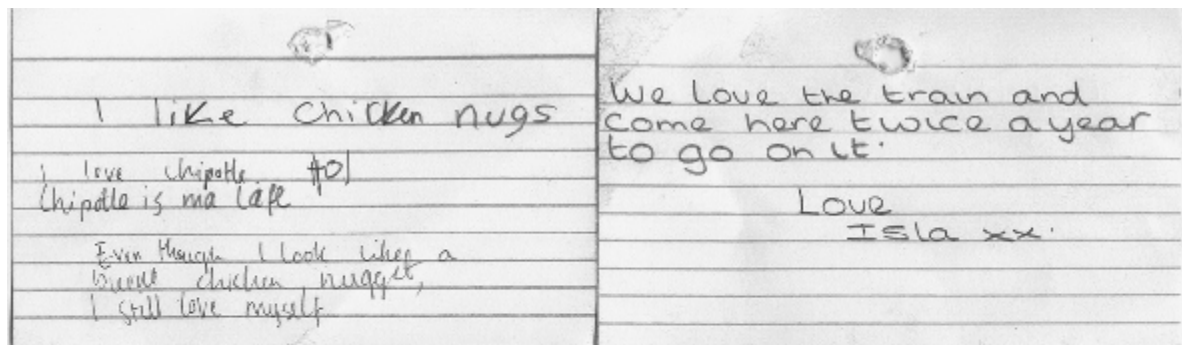 I like Chicken nugs
i love chipotle. #01
Chipotle is ma life
Even though I look like a
chicken nugget,
I still love myself
We love the train and
come here twice a year
to go on it.
Love
Isla xx.